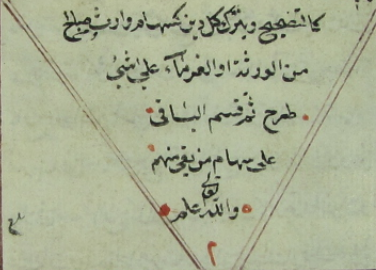 كالتصحيح وينزل كل دين كسهام وارث صلح
من الورثة او الغرماء على شئ
طرح ثم قسم الباقى
على سهام من بقى منهم
تعالى
والله اعلم